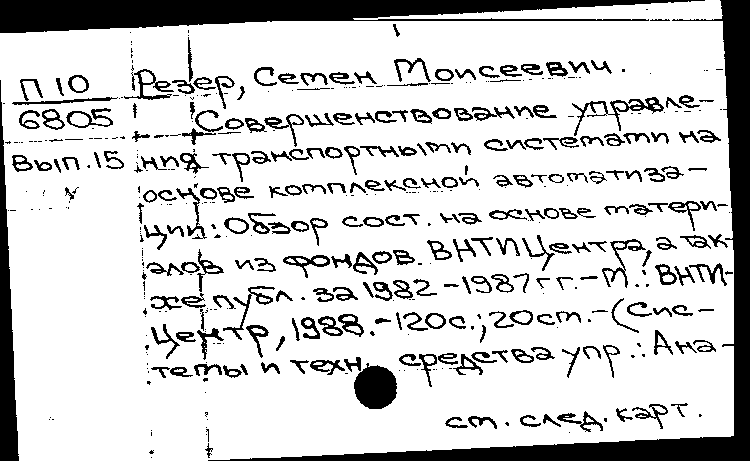 П 10
6805
Вып.15
Резер, Семен Моисеевич.
Совершенствование управле-
ния транспортными системами на
основе комплексной автоматиза-
ции: Обзор сост. на основе матери-
алов из фондов ВНТИЦентра, а так-
же публ. за 1982-1987 гг.-М.: ВНТИ-
Центр, 1988.-120с.; 20см.-(Сис-
темы и техн. средства упр.: Ана-
см. след. карт.